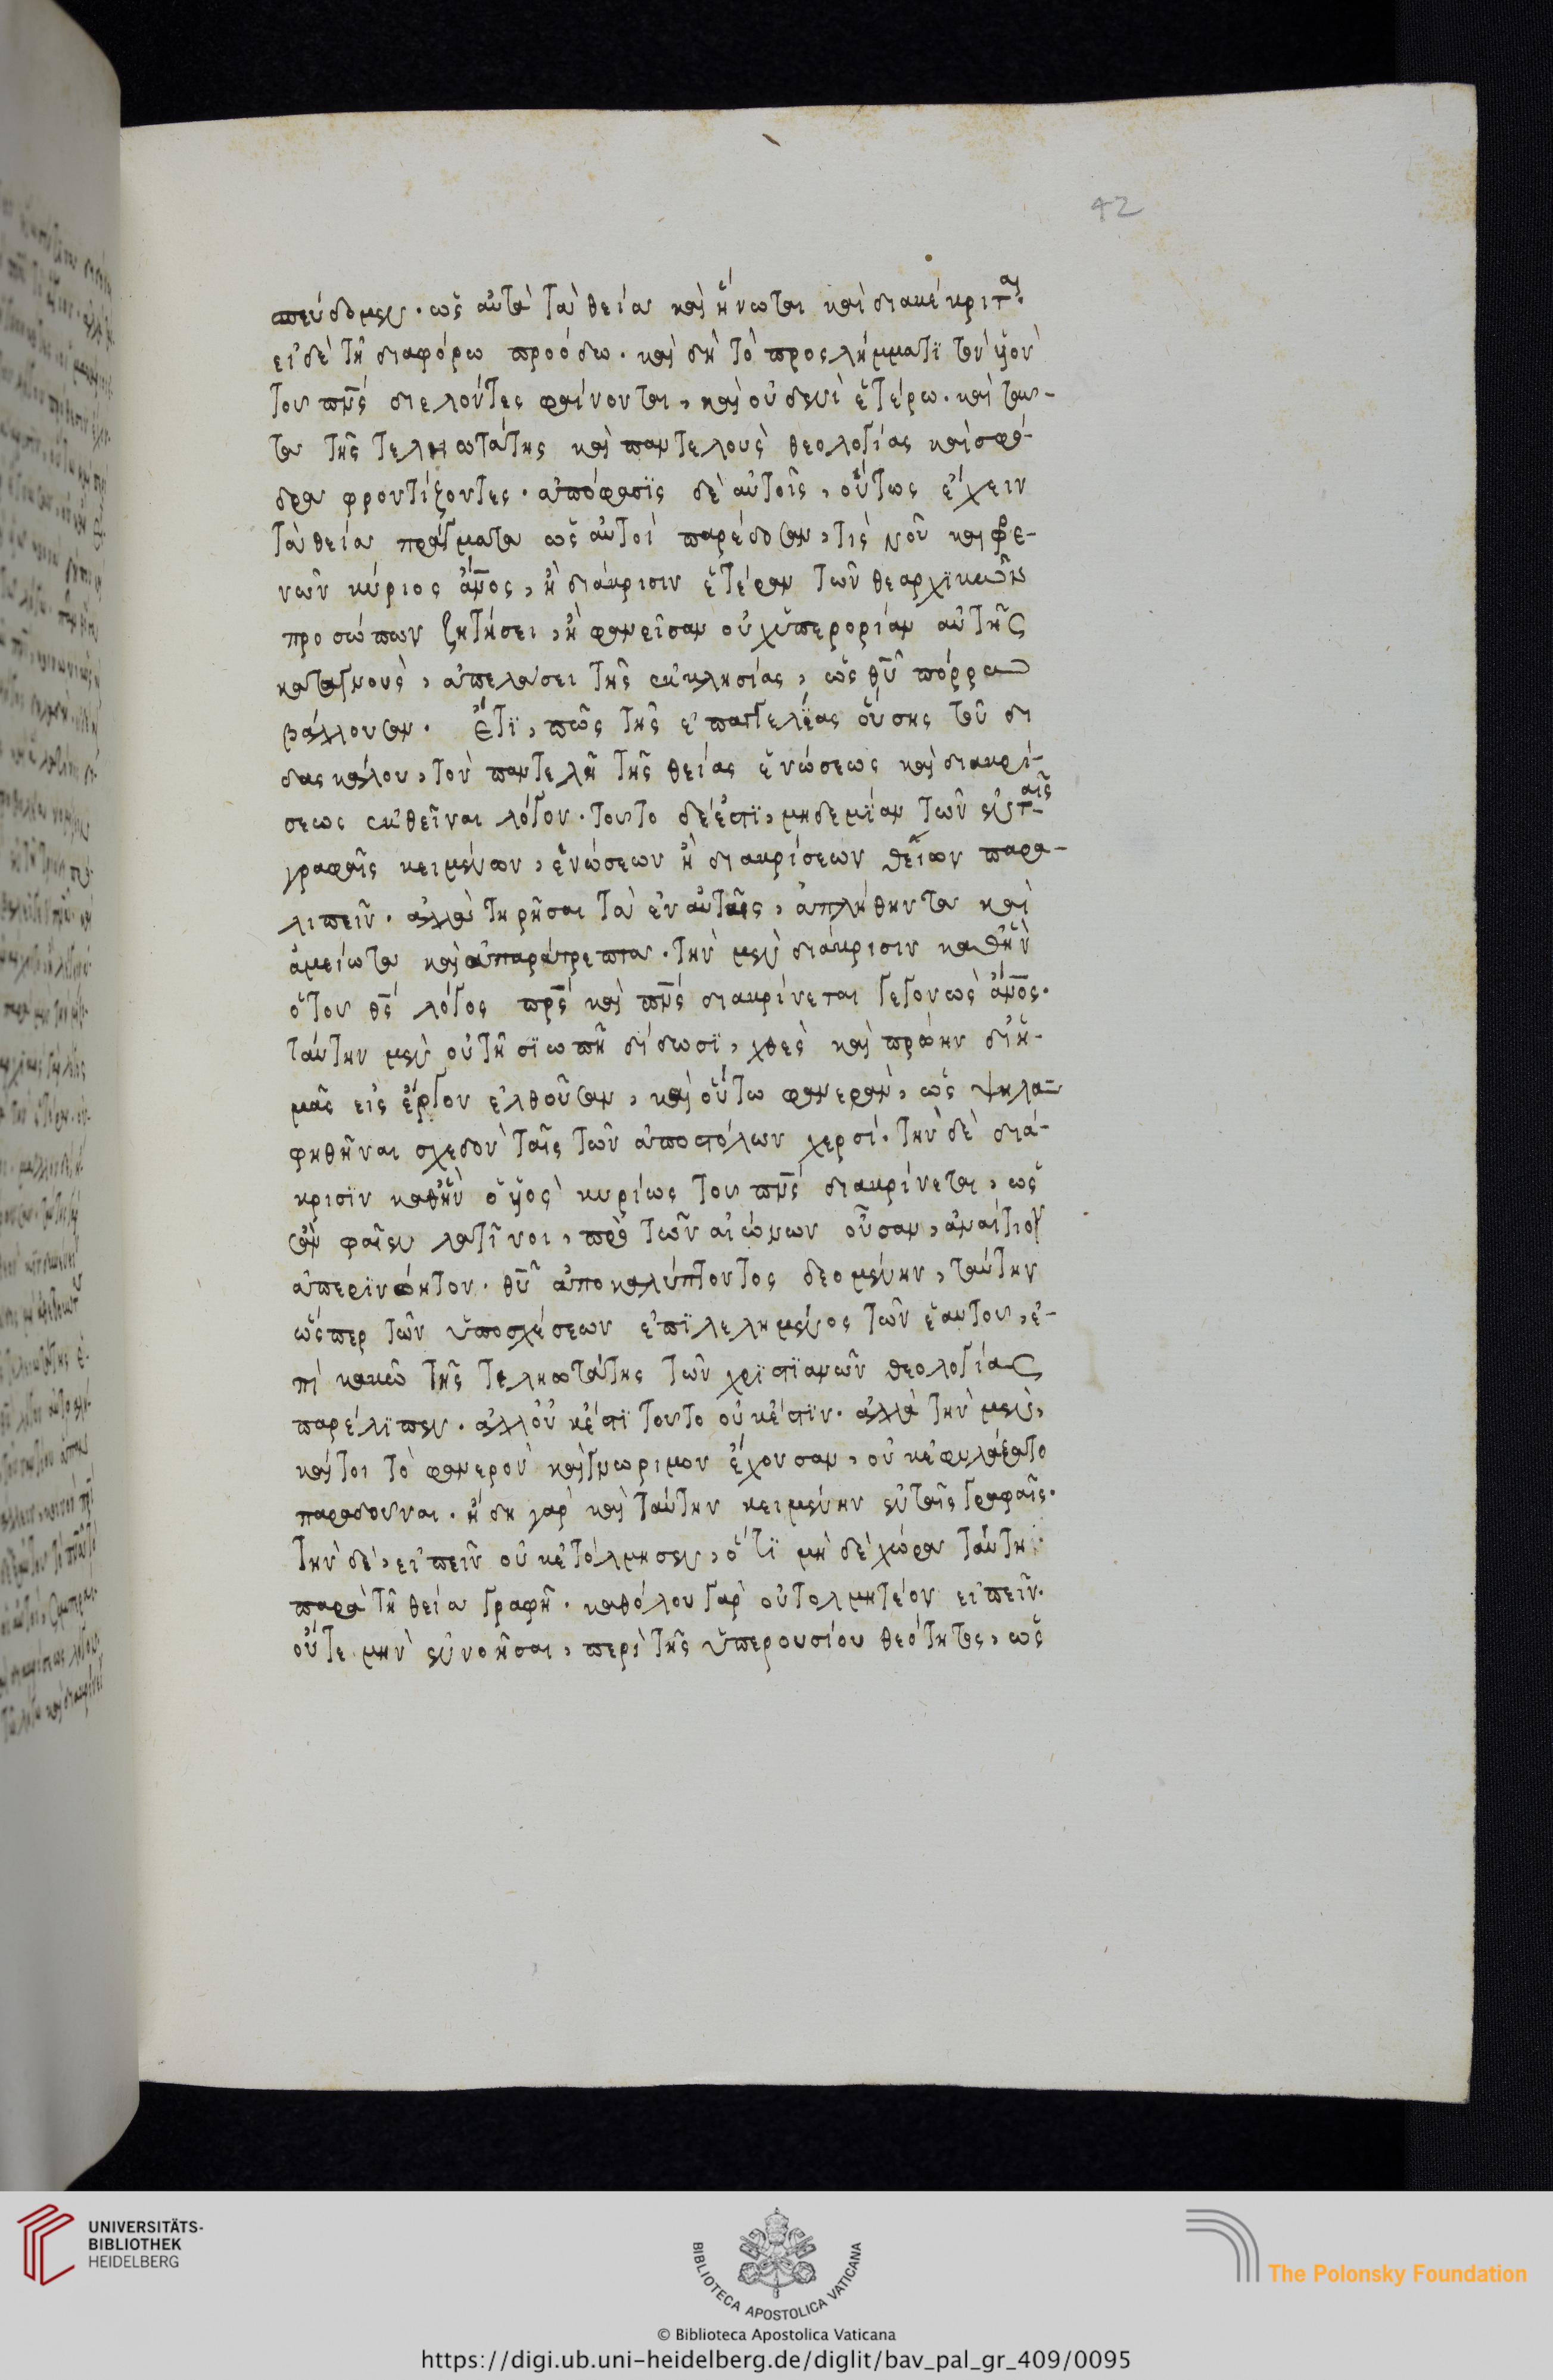 42
σπεύδομεν. ὡς αὐτὰ τὰ θεῖα καὶ ἥνωται καὶ διακέκριται.
εἰ δὲ τῇ διαφόρω προόδω. καὶ δὴ τὸ προςλήμματϊ τὸν υἱὸν
τοῦ πνς διελόντες φαίνονται, καὶ οὐδενὶ ἑτέρω. καὶ ταυ-
τα τῆς τελειωτάτης καὶ παντελοῦς θεολογίας καὶ σφό-
δρα φροντίζοντες. ἀπόφασϊς δὲ αὐτοῖς, οὕτως ἔχειν
τὰ θεῖα πράγματα ὡς αὐτοὶ παρέδοσαν, τίς νοῦ καὶ φρε-
νῶν κύριος ἄνος, ἢ διάκρισιν ἑτέραν τῶν θεαρχϊκῶν
προσώπων ζητήσει, ἢ φανεῖσαν οὐχ ὑπερορίαν αὐτῆς
καταγνοὺς, ἀπελάσει τῆς ἐκκλησίας, ὡς θῦ πόρρω
βάλλουσαν. Ἔτϊ, πῶς τῆς ἐπαγγελίας οὔσης τοῦ δι
δασκάλου, τὸν παντελῆ τῆς θείας ἑνώσεως καὶ διακρί-
σεως ἐκθεῖναι λόγον. τοῦτο δέ ἐστϊ, μηδεμϊαν τῶν ἐν ταῖς
γραφαῖς κειμένων, ἑνώσεων ἢ διακρίσεων θείων παρα-
λιπεῖν. ἀλλὰ τηρῆσαι τὰ ἐν αὐταῖς, ἀπλήθηντα καὶ
ἀμείωτα καὶ ἀπαράτρεπτα. τὴν μὲν διάκρισιν καθ' ἣν
ὁ τοῦ θς λόγος πρς καὶ πνς διακρίνεται γεγονὼς ἄνος.
ταύτην μὲν οὐ τῇ σϊωπῇ δίδωσϊ, χθὲς καὶ πρώην δι' ἡ-
μᾶς εἰς ἔργον ἐλθοῦσαν, καὶ οὕτω φανερὰν, ὡς ψηλα-
φηθῆναι σχεδὸν ταῖς τῶν ἀποστόλων χερσί. τὴν δὲ διά-
κρισϊν καθ' ἣν ὁ υἱὸς κυρίως τοῦ πνς διακρίνεται, ὡς
ἂν φαῖεν λατῖνοι, πρὸ τῶν αἰώνων οὖσαν, ἀναίτιον
ἀπερϊνόητον. θῦ ἀποκαλύπτοντος δεομένην, ταύτην
ὥςπερ τῶν ὑποσχέσεων ἐπϊλελημένος τῶν ἑαυτοῦ, ἐ-
πὶ κακῶ τῆς τεληοτάτης τῶν χρϊστϊανῶν θεολογίας
παρέλϊπεν. ἀλλ' οὐκ ἔστϊ τοῦτο οὐκ ἔστϊν. ἀλλὰ τὴν μὲν,
καίτοι τὸ φανερὸν καὶ γνώριμον ἔχουσαν, οὐκ ἐφυλάξατο
παραδοῦναι. ἤδη γὰρ καὶ ταύτην κειμένην ἐν ταῖς γραφαῖς.
τὴν δὲ, εἰπεῖν οὐκ ἐτόλμησεν, ὅτϊ μὴ δὲ χώρα ταύτη
παρὰ τῇ θεία γραφῇ. καθόλου γὰρ οὐ τολμητέον εἰπεῖν.
οὔτε μὴν ἐννοῆσαι, περὶ τῆς ὑπερουσίου θεότητος, ὡς
UNIVERSITÄTS-
BIBLIOTHEK
HEIDELBERG
BIBLIOTECA APOSTOLICA VATICANA
The Polonsky Foundation
© Biblioteca Apostolica Vaticana
https://digi.ub.uni-heidelberg.de/diglit/bav_pal_gr_409/0095